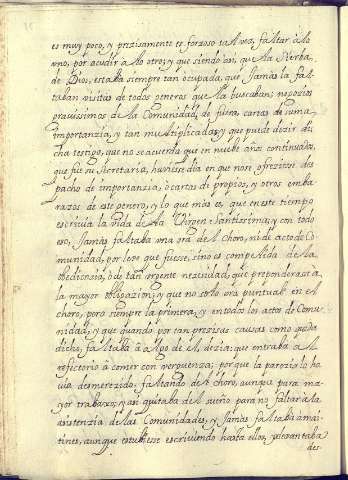 es muy poco, y prezisamente es forzoso tal vez, faltar à lo
uno, por acudir a lo otro; y que siendo asi, que la sierba,
de Dios, estaba siempre tan ocupada, que jamas la fal-
taban visitas de todos generos que la buscaban; negozios
gravissimos de la Comunidad, de fuera, cartas de suma
importanzia, y tan multiplicadas, y que puede dezir di-
cha testigo, que no se acuerda que en nuebe años continuados,
que fue su secretaria, hubiese dia en que no se ofreziese des
pacho de importanzia, ò cartas, de propios, y otros emba-
razos de este genero, y lo que mas es, que en este tiempo
escriuia la vida de la Virgen Santissima; y con todo
eso, jamas faltaba una ora del choro, ni de acto de Co-
munidad, por lebe que fuese, sino es compelida de la
obediensia, ò de tan urgente nezesidad, que preponderasse a
la mayor obligazion; y que no solo era puntual en el
choro, pero siempre la primera, y en todos los actos de Comu-
nidad; y que quando por tan preszisas causas como queda
dicho, faltaba à algo de el, dezia: que entraba al
refectorio a comer con verguenza; por que la parezia lo ha
uia desmerezido, faltando del choro, aunque para ma-
yor trabaxo; y asi quitaba del sueño para no faltar a la
asistenzia de las Comunidades, y jamas faltaba a mai-
tines, aunque estubiese escriuiendo hasta ellos, y lebantaba
des-